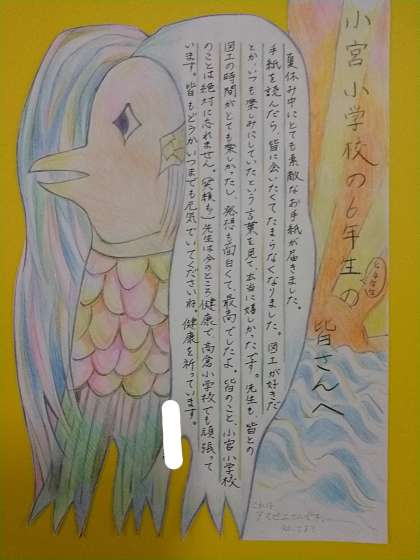 小宮小学校の6年生の
皆さんへ
夏休み中にとても素敵なお手紙が届きました。
手紙を読んだら、皆に会いたくてたまらなくなりました。図工が好きだ
とか、いつも楽しみにしていたという言葉を見て、本当に嬉しかったです。先生も、皆との
図工の時間がとても楽しかったし、発想も面白くて、最高でしたよ。皆のこと、小宮小学校
のことは絶対に忘れません。(笑顔も)先生は今のところ健康で、高倉小学校でも頑張って
います。皆もどうかいつまでも元気でいてくださいね。健康を祈っています。
これは
アマビエさんです。